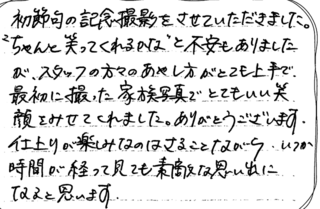 初節句の記念撮影をさせていただきました。
"ちゃんと笑ってくれるかな"と不安もありました
が、スタッフの方々のあやし方がとても上手で、
最初に撮った家族写真でとてもいい笑
顔をみせてくれました。ありがとうございます。
仕上りが楽しみなのはさることながら、いつか
時間が経って見ても素敵な思い出に
なると思います。